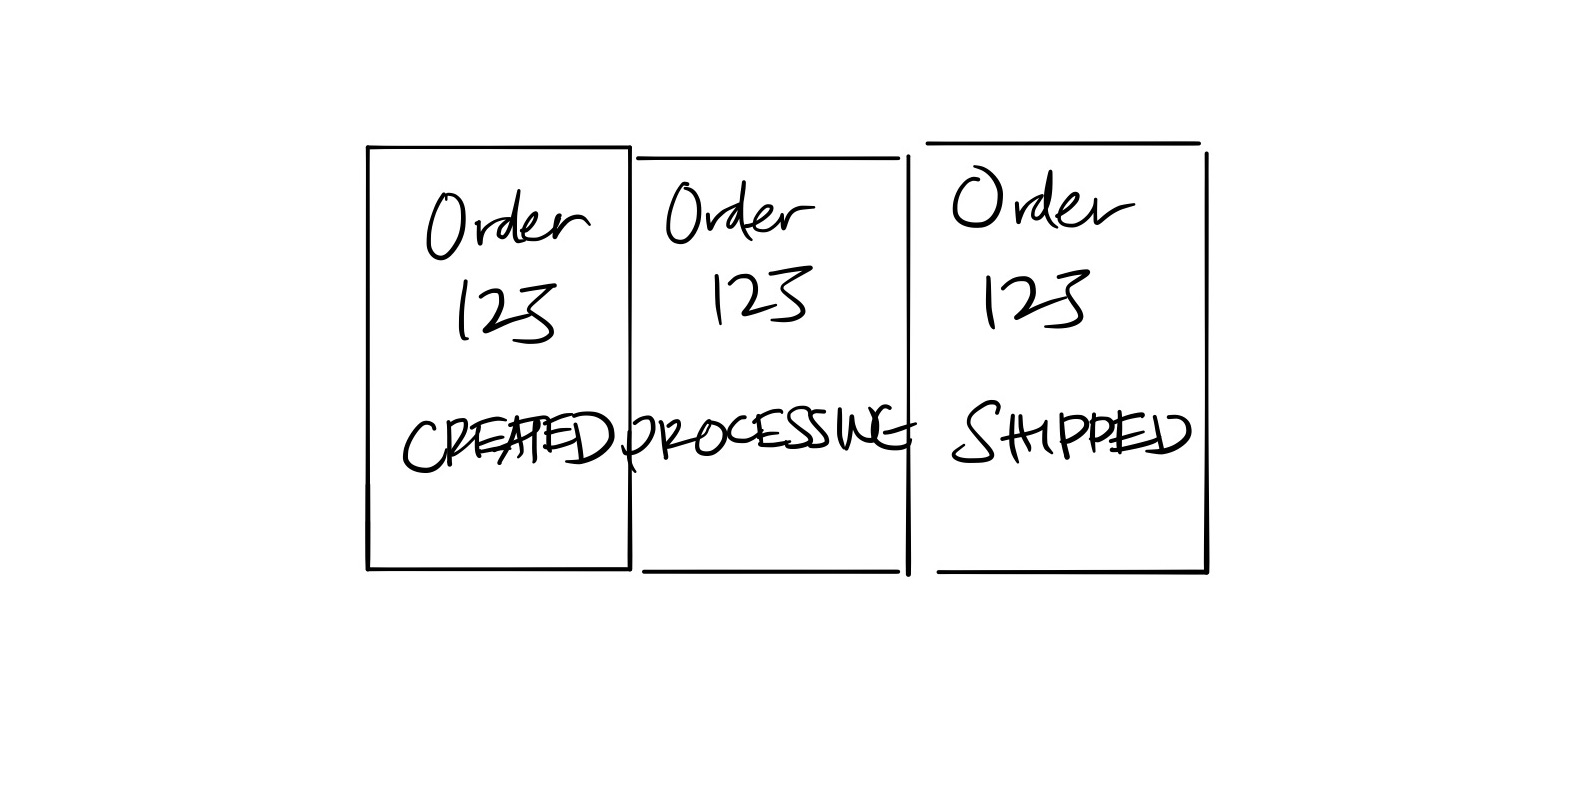 Order
123
CREATED
Order
123
PROCESSING
Order
123
SHIPPED